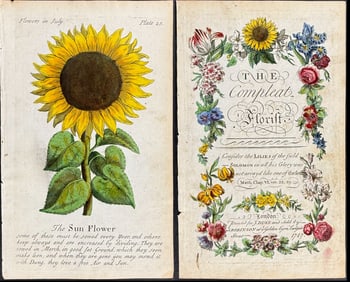 Flowers in July Plate 25
The Sun Flower
some of these must be sowed every Year, and others
keep always and are encreased by dividing. They are
sowed in March, in good fat Ground, which they soon
make lean, and when they are gone you may mend it
with Dung, they love a free Air and Sun.
THE
Compleat
Florist.
Consider the LILIES of the field
SOLOMON in all his Glory was
not arrayed like one of these
Math. Chap. VI. ver. 28. 29
London
Printed for J. DUKE and sold